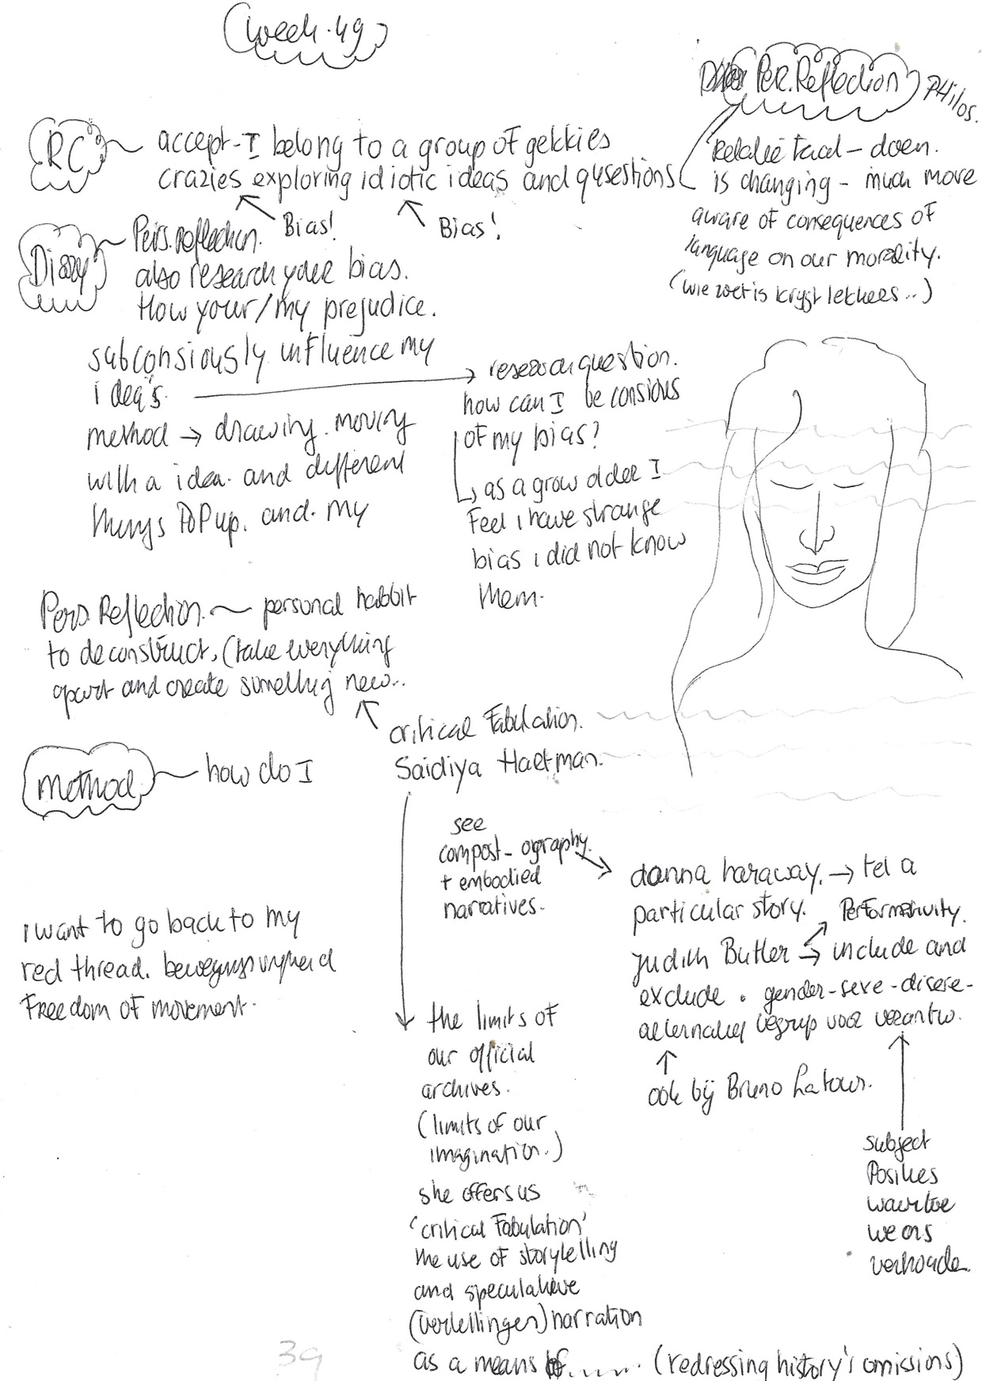 week.49
Per.Reflection Philos.
Relatie taal – doen.
is changing – much more
aware of consequences of
language on our morality.
(wie zoet is krijgt lekkers..)
RC
accept-I belong to a group of gekkies
crazies exploring idiotic ideas and qusestions
Bias!
Bias!
Diary
Pers.reflection.
also research your bias.
How your/my prejudice.
subconsiously influence my
idea's.
method → drawing. moving
with a idea. and different
things PoP up. and. my
research question.
how can I be consious
of my bias?
as a grow older I
Feel i have strange
bias i did not know
them.
Pers.Reflection. personal habbit
to deconstruct, (take everything
apart and create something new..
critical Fabulation.
Saidiya Hartman.
method
how do I
see
compost-ography.
+ embodied
narratives.
donna haraway. → tel a
particular story. Performativity.
Judith Butler → include and
exclude.
ook bij Bruno Latour.
subject
Posities
waartoe
we ons
verhoude.
i want to go back to my
red thread. bewegingsvrijheid
Freedom of movement.
the limits of
our official
archives.
(limits of our
imagination.)
she offers us
'critical Fabulation'
the use of storytelling
and speculatieve
(vertellingen) narration
as a means of...... (redressing history's omissions)
39